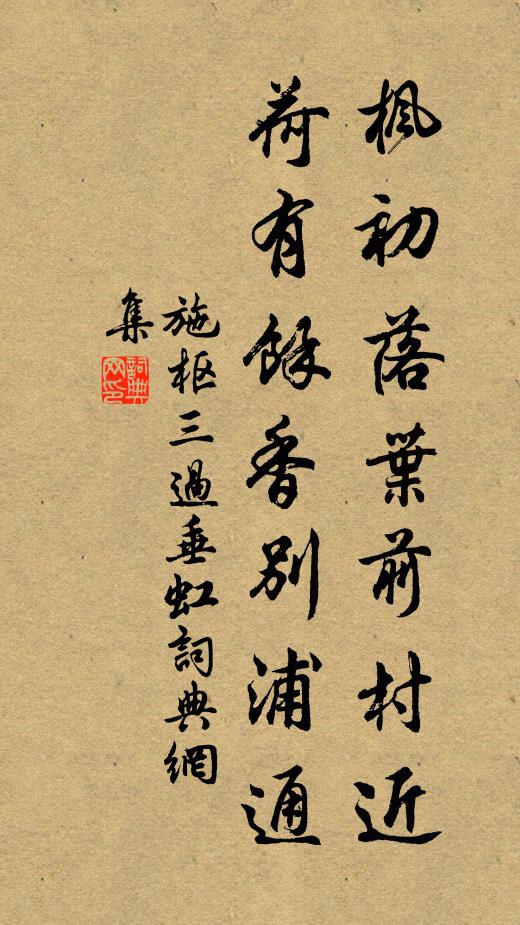 楓初落葉前村近
荷有餘香別浦通
施枢三過垂虹詞典網
集
詞典网印